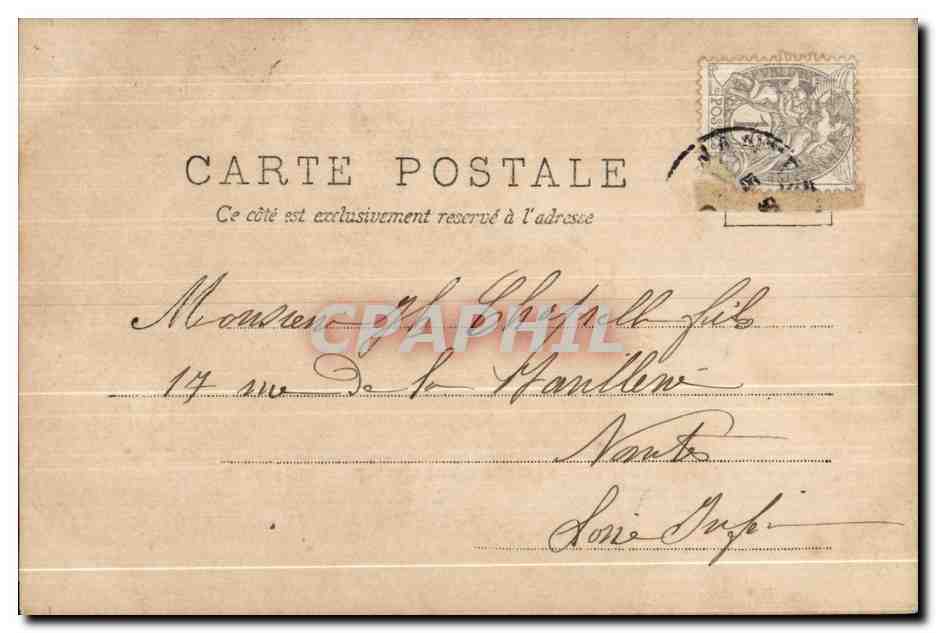 CARTE POSTALE
Ce côté est exclusivement reservé à l'adresse
Monsieur Jh fils
CPAPHIL
17 rue de la
Nantes
Loire Infre